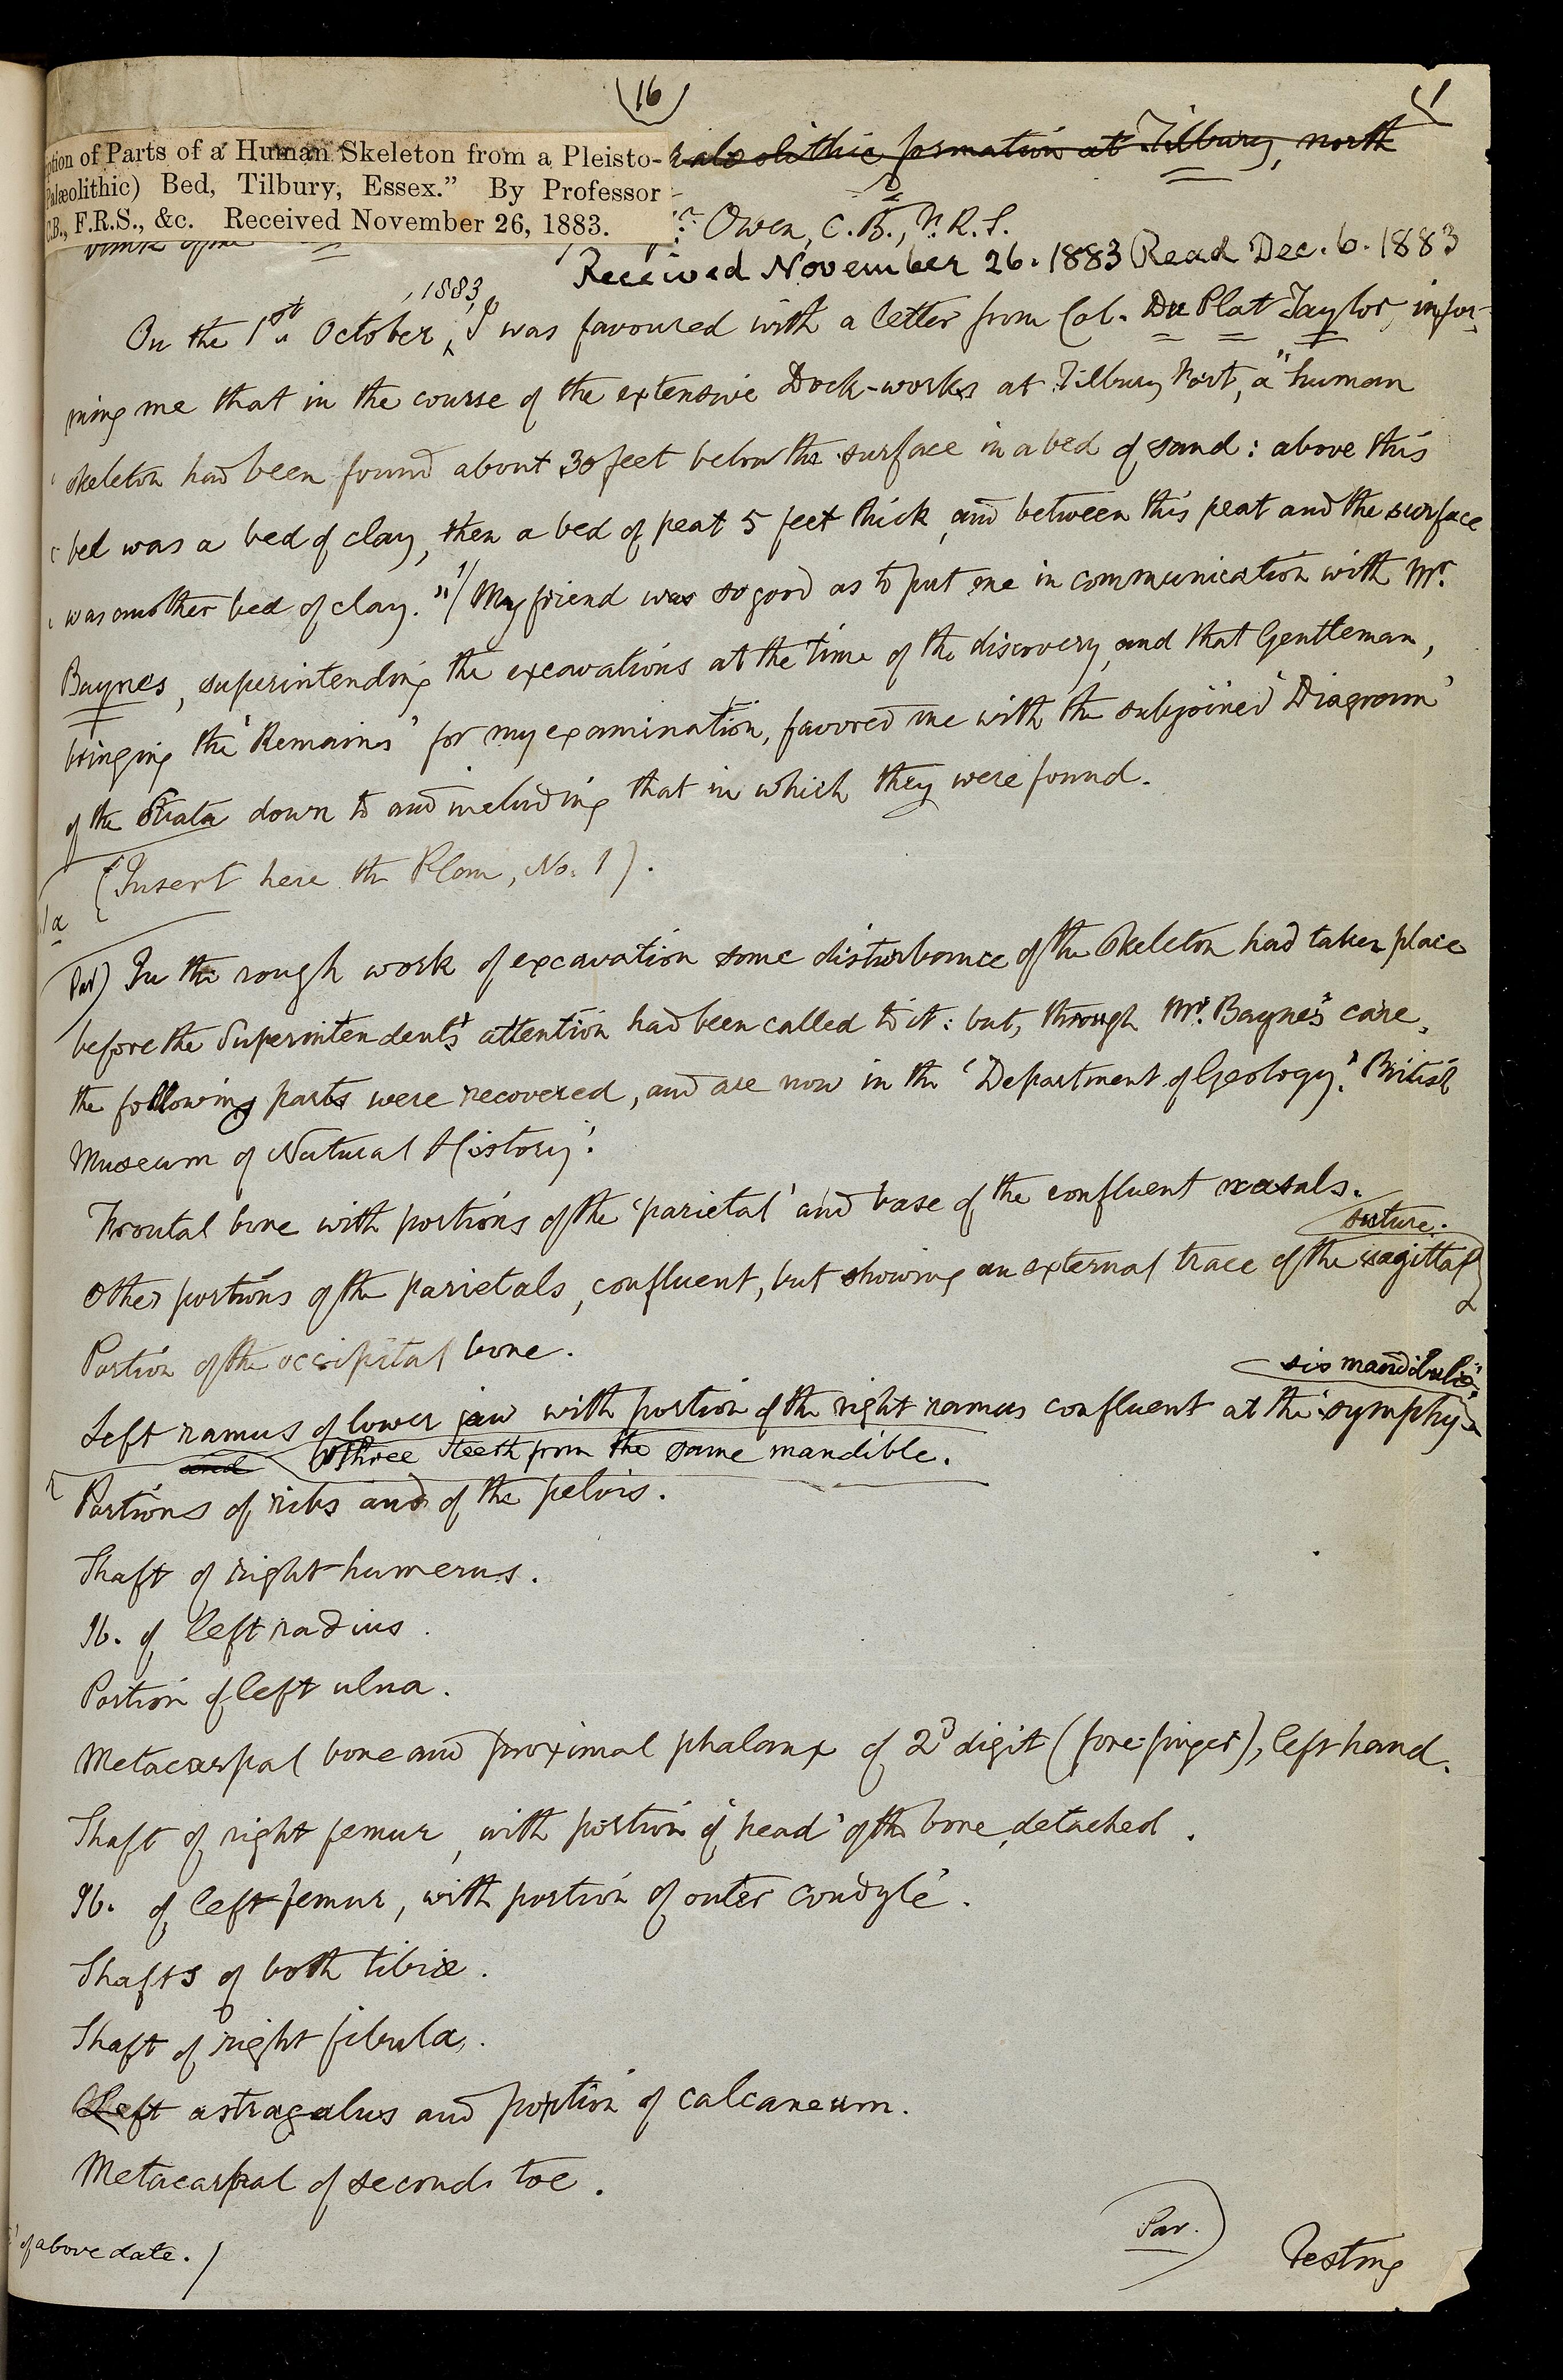 16
1
otion of Parts of a Human Skeleton from a Pleisto-
Palæolithic) Bed, Tilbury, Essex.” By Professor
C.B., F.R.S., &c. Received November 26, 1883.
formation at Tilbury, north
Owen, C.B., F.R.S.
Received November 26. 1883 Read Dec. 6. 1883
, 1883,
On the 1st October, I was favoured with a letter from Col. Du Plat Taylor, infor-
ming me that in the course of the extensive Dock-works at Tilbury Fort, a "human
' skeleton had been found about 30 feet below the surface in a bed of sand: above this
' bed was a bed of clay, then a bed of peat 5 feet thick, and between this peat and the surface
' was another bed of clay." 1/ My friend was so good as to put me in communication with Mr.
Baynes, superintending the excavations at the time of the discovery, and that Gentleman,
bringing the 'Remains' for my examination, favored me with the subjoined 'Diagram'
of the Strata down to and including that in which they were found.
(Insert here the Plan, No. 1).
1a
Par) In the rough work of excavation some disturbance of the Skeleton had taken place
before the Superintendent's attention had been called to it: but, through Mr. Baynes's care,
the following parts were recovered, and are now in the 'Department of Geology,' British
Museum of Natural History.'
Frontal bone with portions of the 'parietal' and base of the confluent nasals.
suture.
Other portions of the parietals, confluent, but showing an external trace of the sagittal
Portion of the occipital bone.
sis mandibulæ.'
Left ramus of lower jaw with portion of the right ramus confluent at the 'symphy-
and three teeth from the same mandible.
Portions of ribs and of the pelvis.
Shaft of right humerus.
Ib. of left radius.
Portion of left ulna.
Metacarpal bone and proximal phalanx of 2d digit (fore-finger), left hand.
Shaft of right femur, with portion of 'head' of the bone, detached.
Ib. of left femur, with portion of outer condyle.
Shafts of both tibiæ.
Shaft of right fibula.
Left astragalus and portion of calcaneum.
Metacarpal of second toe.
Par.)
of above date. /
Testing